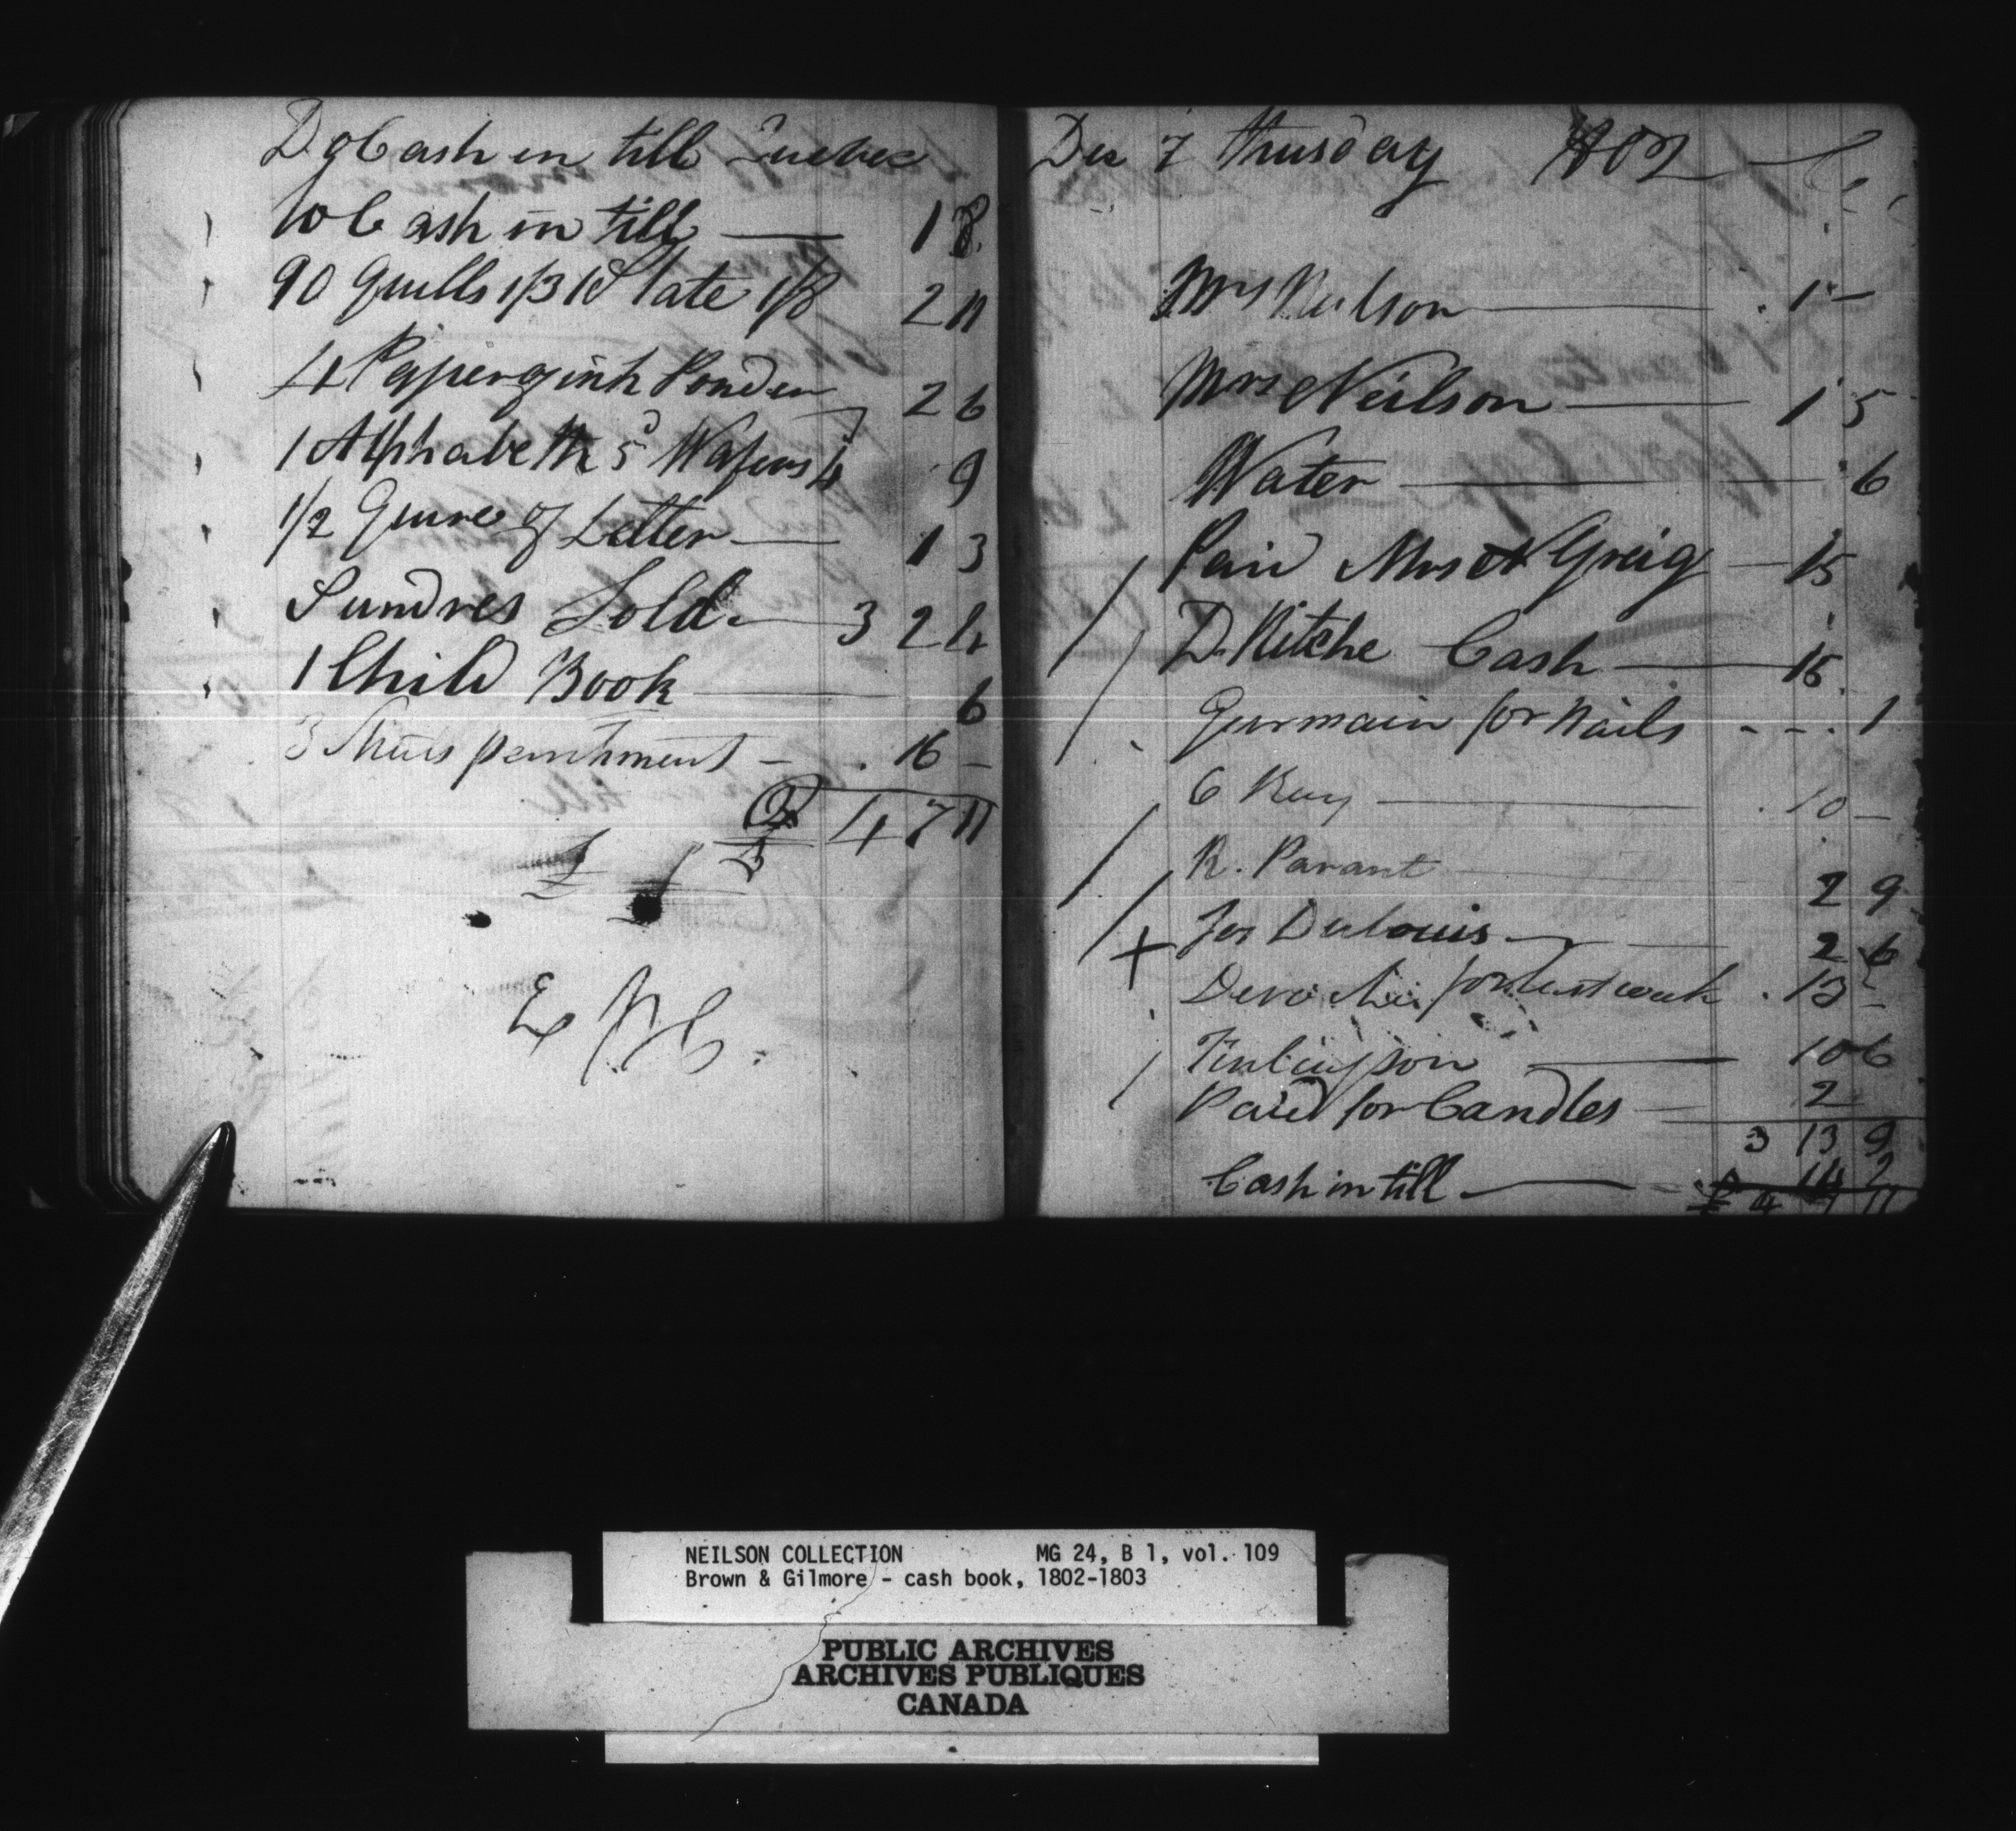 Dr Cash in till Quebec
To Cash in till — 1 8
90 Quills 1/3 1 Slate 1/8 2 11
4 Paper of ink Powder 2 6
1 Alphabeth 5d Wafers 4 9
1/2 Quire of Letter — 1 3
Sundres Sold — 3 2 4
1 Child Book — 6
3 Skins parchment — 16 —
£ 4 7 11
Dec 7 thusday 1802 Cr
Mrs Neilson — 1 —
Mrs Neilson — 1 5
Water — 6
Paid Mrs Greig — 15
D. Ritche Cash — 15
Germain for Nails - - - 1
C Ray — 10 —
R. Parant 2 9
Jos Dulouis — 2 6
for last week 13 —
10 6
Paid for Candles — 2
3 13 9
Cash in till — 14 2
£ 4 7 11
NEILSON COLLECTION MG 24, B 1, vol. 109
Brown & Gilmore - cash book, 1802-1803
PUBLIC ARCHIVES
ARCHIVES PUBLIQUES
CANADA